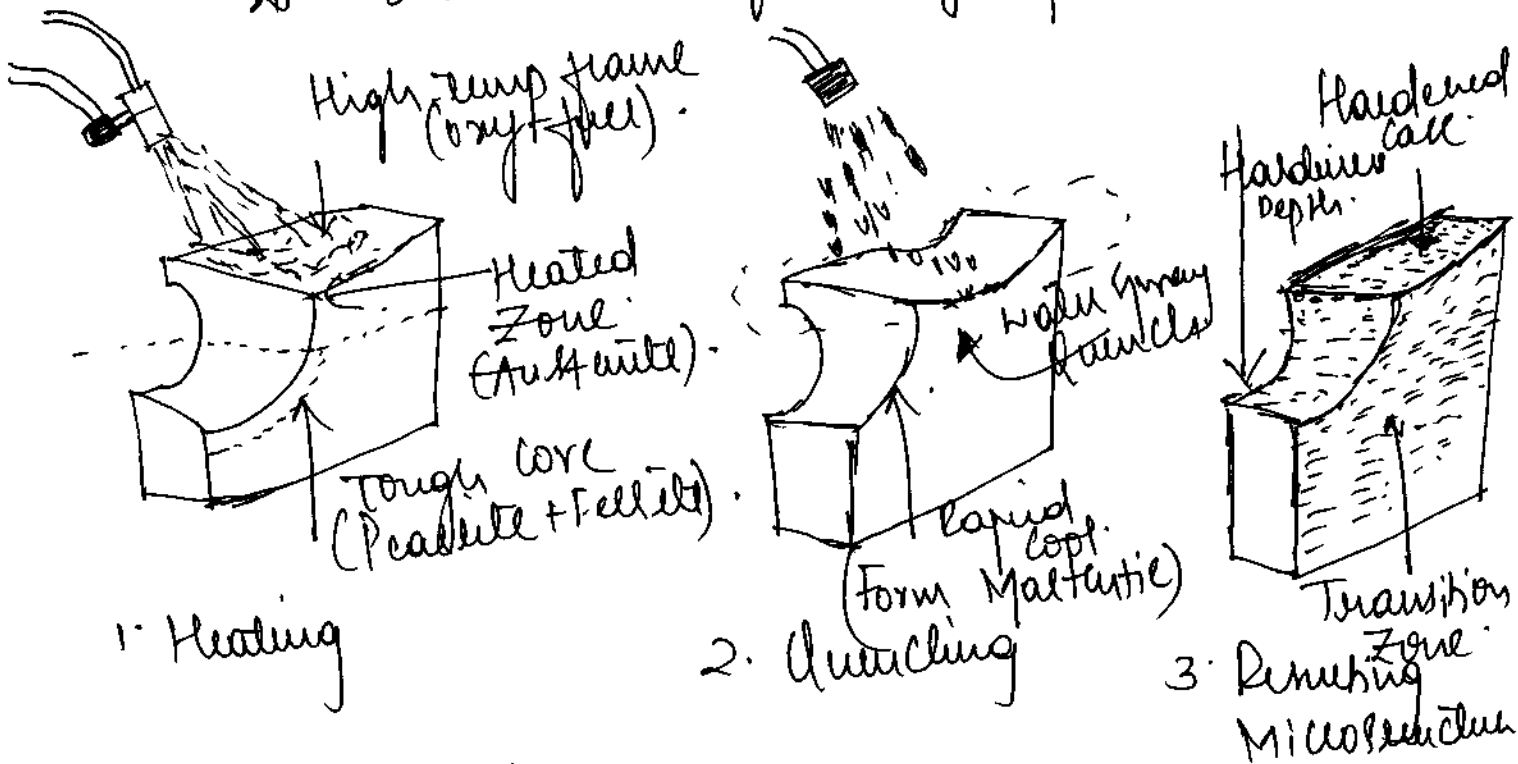 High-temp flame
(oxy+fuel).
Heated
Zone
(Austenite).
Tough core
(Pearlite + Ferrite).
1. Heating
Water Spray
Quench
Rapid
Cool.
(Form Martensite)
2. Quenching
Hardened
Case
Hardness
Depth.
Transition
Zone.
3. Resulting
Microstructure